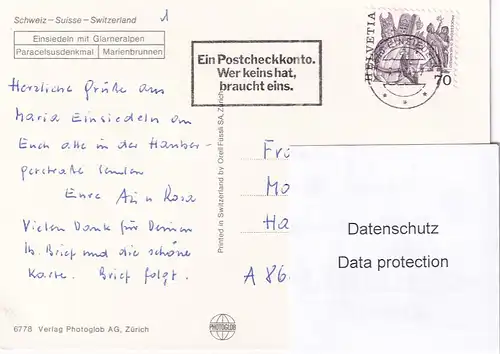 Schweiz – Suisse – Switzerland
1
Einsiedeln mit Glarneralpen
Paracelsusdenkmal Marienbrunnen
Ein Postcheckkonto.
Wer keins hat,
braucht eins.
HELVETIA
70
Herzliche Grüße aus
Maria Einsiedeln an
Euch alle in der
senden
Eure
Rosa
Vielen Dank für Deinen
lb. Brief und die schöne
Karte. Brief folgt.
Printed in Switzerland by Orell Füssli SA, Zürich
Fr
Mo
Ha
A 86
Datenschutz
Data protection
6778 Verlag Photoglob AG, Zürich
PHOTOGLOB